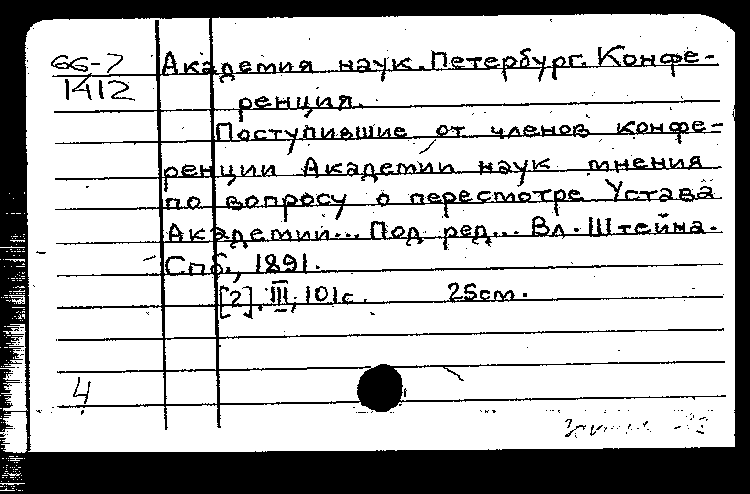 66-7
1412
Академия наук. Петербург. Конфе-
ренция.
Поступившие от членов конфе-
ренции Академии наук мнения
по вопросу о пересмотре Устава
Академии... Под ред... Вл. Штейна.
Спб., 1891.
[2], III, 101с. 25см.
4